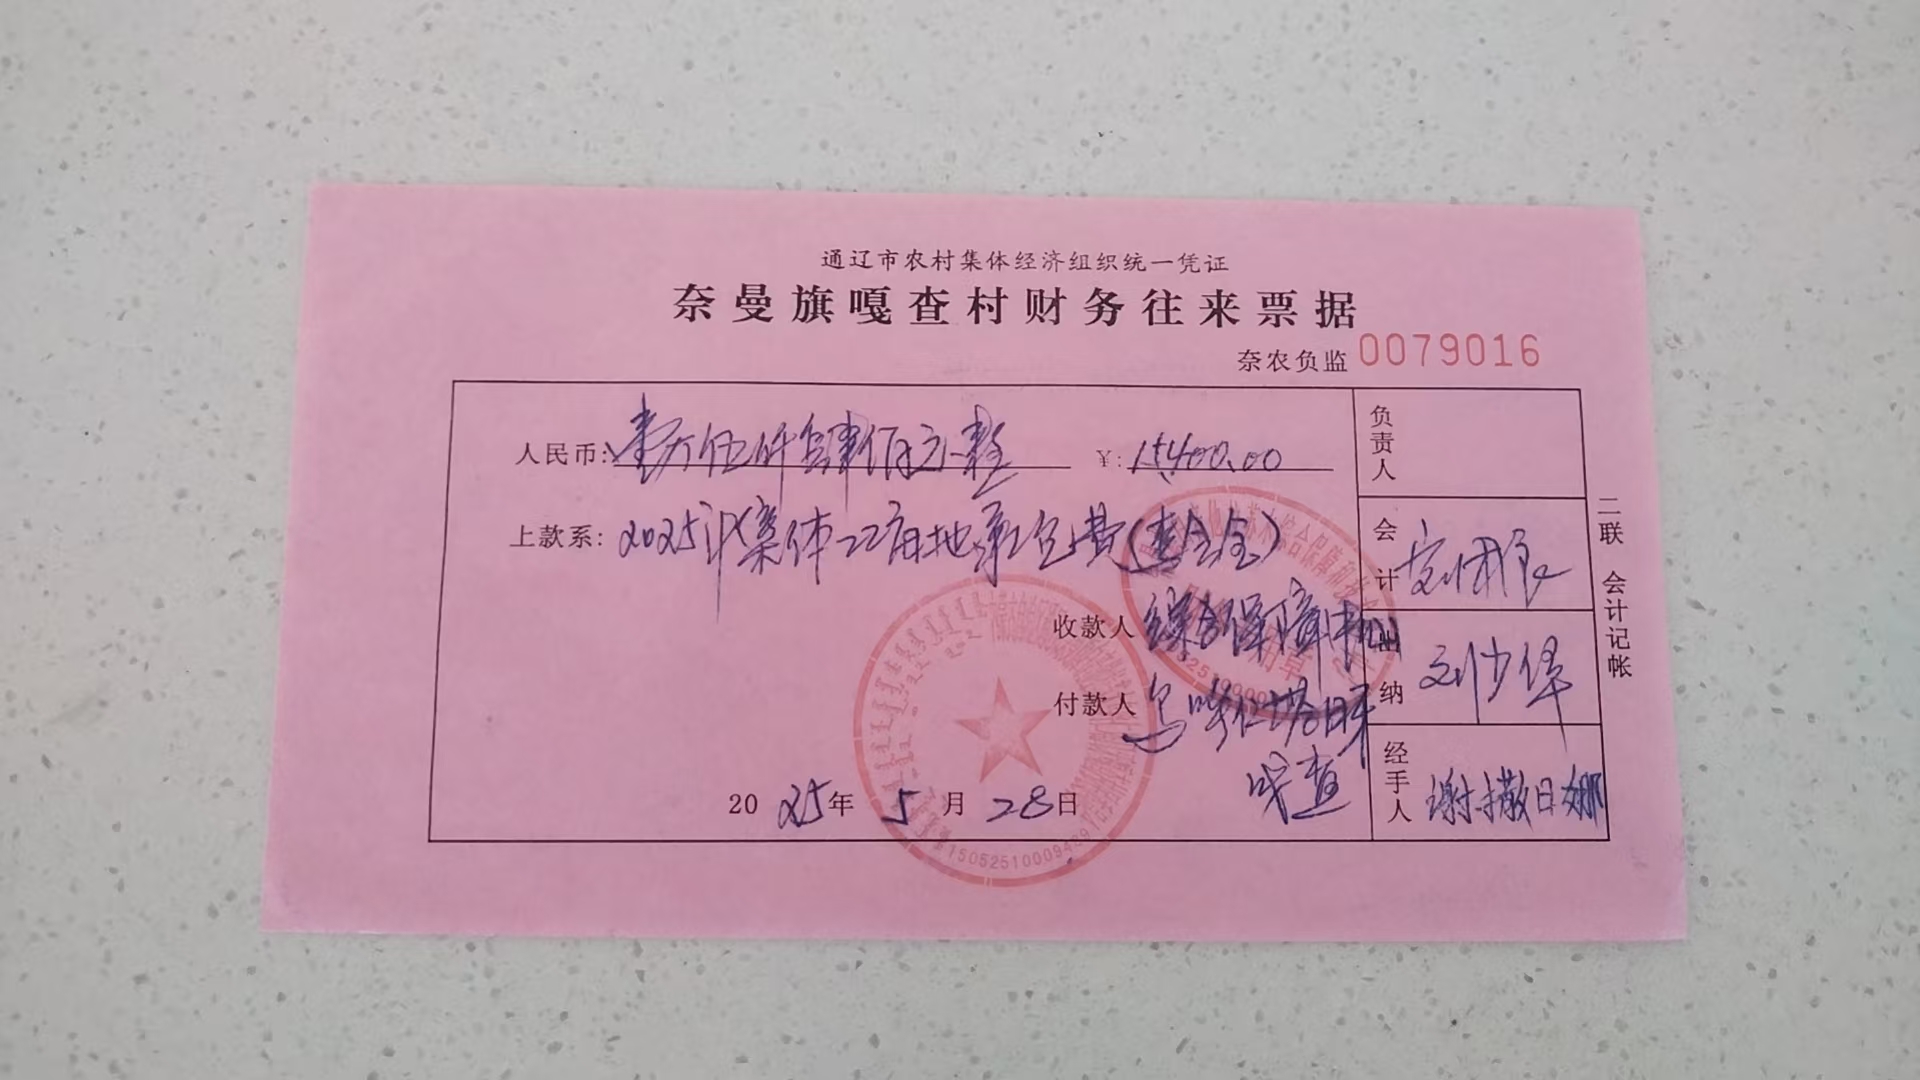 通辽市农村集体经济组织统一凭证
奈曼旗嘎查村财务往来票据
奈农负监 0079016
人民币: 壹万伍仟肆佰元整 ¥: 15400.00
上款系: 2025年集体22亩地承包费
收款人 综合保障中心
付款人 乌呼仁塔日
嘎查
2025年 5月 28日
负责人
会计
出纳 刘少华
经手人 谢撒日娜
二联 会计记帐